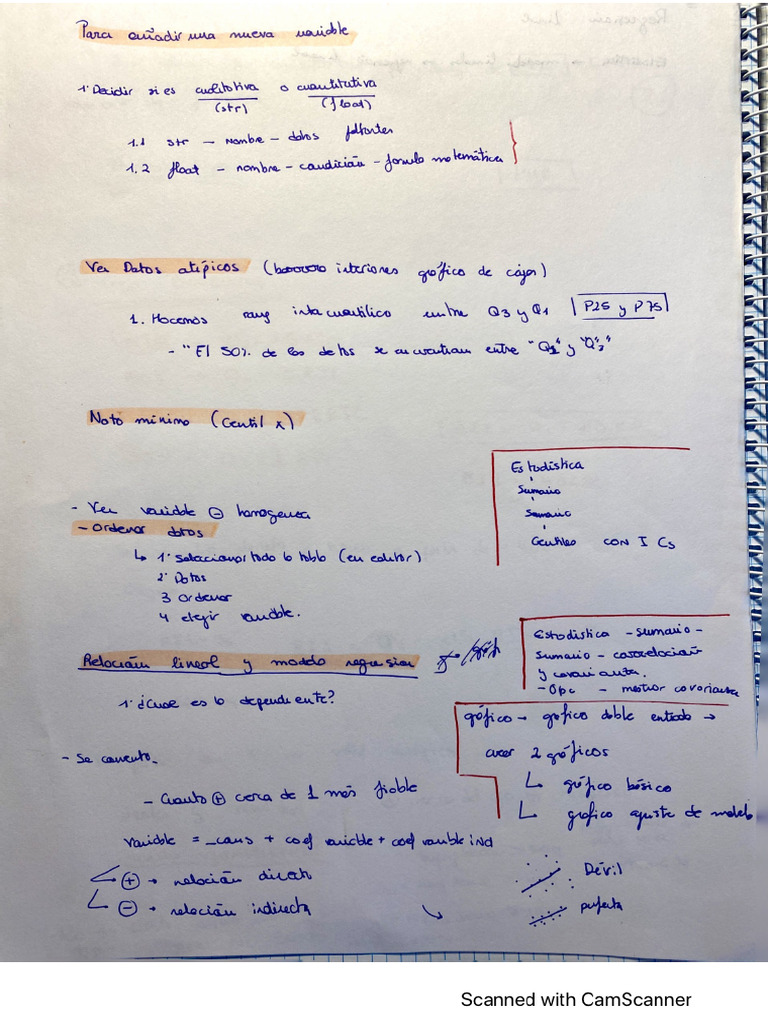 Para añadir una nueva variable
1. Decidir si es cualitativa o cuantitativa
(str) (float)
1.1 str - Nombre - datos faltantes
1.2 float - nombre - condición - formula matemática
Ver Datos atípicos (interiores gráfico de cajas)
1. Hacemos rang intacuantilico entre Q3 y Q1 | P25 y P75 |
- "El 50% de los datos se encuentran entre "Q1" y "Q3"
Nota mínima (Centil x)
Estadística
Sumario
Sumario
Centiles CON I Cs
- Ver variable ⊖ homogenea
- Ordenar datos
↳ 1. Seleccionar toda la tabla (en editor)
2. Datos
3 Ordenar
4 elegir variable.
Relación lineal y modelo regresion
Estadística - Sumario -
Sumario - correlación
y covarianza.
- Opc - mostrar covarianza
1. ¿Cual es la dependiente?
gráfico → grafico doble entrada →
crear 2 gráficos
↳ gráfico básico
↳ grafico ajuste de modelo
- Se comenta.
- Cuanto ⊕ cerca de 1 más fiable
Variable = _cons + coef variable + coef variable ind
⊕ → relación directa
⊖ → relación indirecta
Dévil
perfecta
Scanned with CamScanner